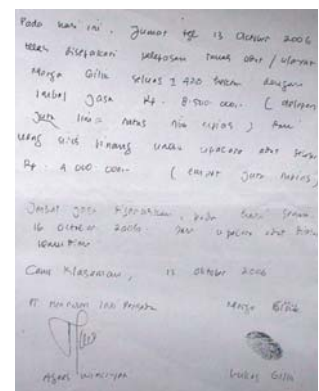 Pada hari ini, Jumat tgl 13 Oktober 2006
telah disepakati pelepasan tanah adat / ulayat
Marga Gilik seluas ± 420 hektar dengan
Imbal Jasa Rp. 8.500.000,- ( delapan
Juta lima ratus ribu rupiah ) dan
uang sirih pinang untuk upacara adat
Rp. 4.000.000,- ( empat Juta rupiah )
Imbal Jasa diserahkan, pada hari Senin
16 Oktober 2006 dan upacara adat
Klasaman, 13 Oktober 2006
PT. Marga Gilik
Agus Lukas Gilik